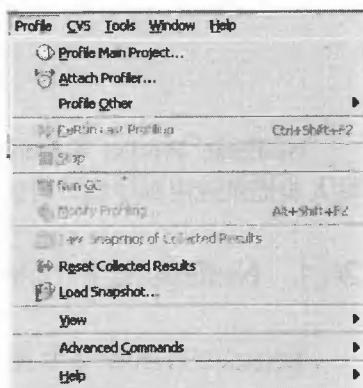 Profile CVS Tools Window Help
Profile Main Project...
Attach Profiler...
Profile Other
ReRun Last Profiling Ctrl+Shift+F2
Stop
Run GC
Modify Profiling Alt+Shift+F2
Take Snapshot of Collected Results
Reset Collected Results
Load Snapshot...
View
Advanced Commands
Help